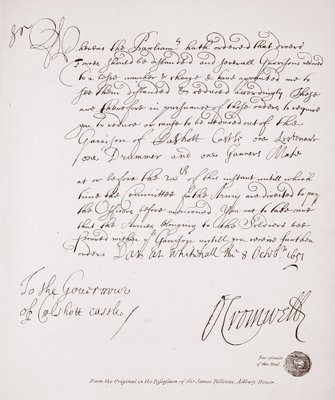 Sr
Whereas the Parliamt hath ordered that divers
fforces should be disbanded and severall Garrisons reduced
to a lesse number & charge & have appointed me to
see them disbanded & reduced accordingly These
are therefore in pursuance of those orders to require
you to reduce or cause to be reduced out of the
Garrison of Calshott Castle one Leiutenant
one Drummer and one Gunners Mate
at or before the of this instant untill which
time the Committee of the Army are directed to pay
the Officers before menconed You are to take care
that the Armes belonging to the Soldiers bee
secured within yr Garrison untill you receive further
orders Dat at Whitehall the 8 Octobr 1651
To the Governour
of Calshott Castle/
OCromwell
Fac-simile
of the Seal.
From the Original in the Possession of Sir James Fellowes, Adbury House.